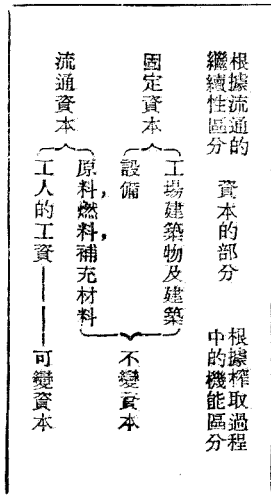 根據流通的
繼續性區分
資本的部分
根據榨取過程
中的機能區分
固定資本
工場建築物及建築
設備
不變資本
流通資本
原料，燃料，補充材料
工人的工資——可變資本